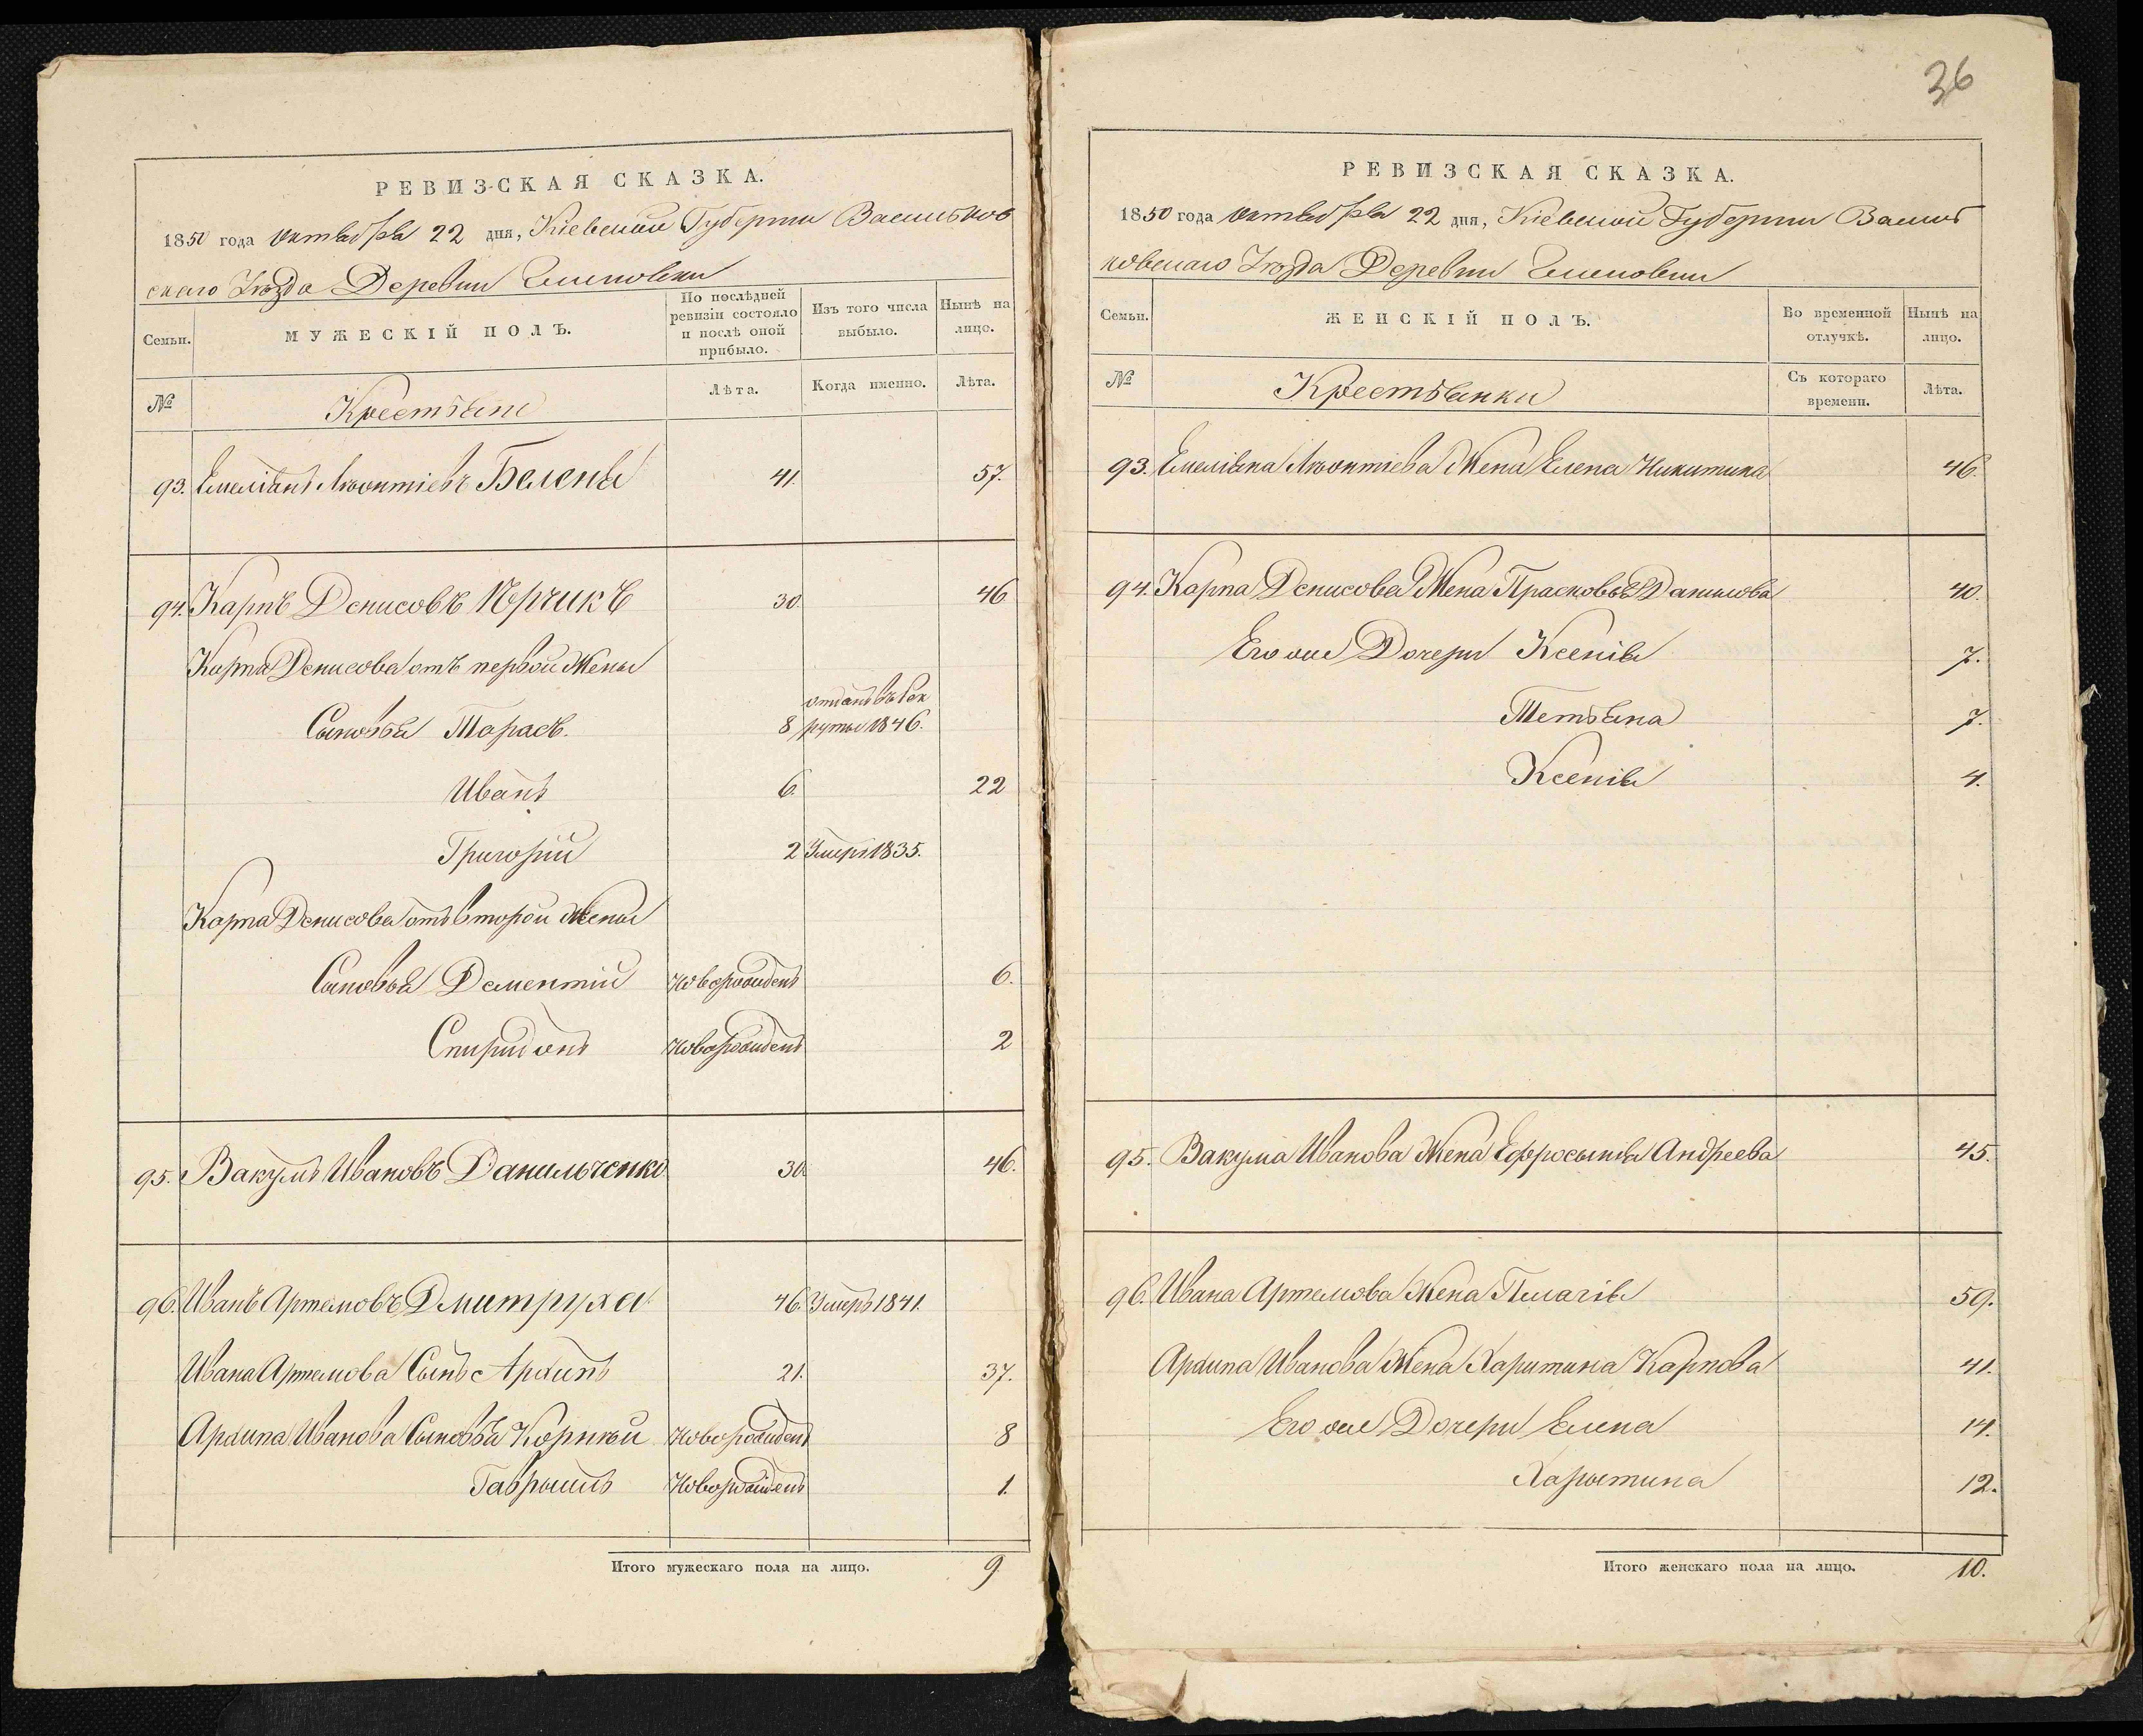 РЕВИЗСКАЯ СКАЗКА.
1850 года октября 22 дня, Кіевской Губерніи Васильков
скаго Уѣзда Деревни
Семьи.
МУЖЕСКІЙ ПОЛЪ.
По послѣдней ревизіи состояло и послѣ оной прибыло.
Изъ того числа выбыло.
Нынѣ на лицо.
№
Крестьяне
Лѣта.
Когда именно.
Лѣта.
93. Емеліянъ Леонтіевъ Белень 41. 57.
94. Карпъ Денисовъ Юрчикъ 30. 46
Карпа Денисова отъ первой Жены
Сыновья Тарасъ. 8 отданъ въ Рек
руты 1846.
Иванъ 6. 22
Григорій 2 Умеръ 1835.
Карпа Денисова отъ второй Жены
Сыновья Дементий Новорожденъ 6.
Спиридонъ Новорожденъ 2
95. Вакулъ Ивановъ Данильченко 30. 46.
96. Иванъ Артемовъ Дмитруха 46. Умеръ 1841.
Ивана Артемова Сынъ Архипъ 21. 37.
Архипа Иванова Сыновья Корнѣй Новорожденъ 8
Гаврыилъ Новорожденъ 1.
Итого мужескаго пола на лицо. 9
36
РЕВИЗСКАЯ СКАЗКА.
1850 года октября 22 дня, Кіевской Губерніи Василь
ковскаго Уѣзда Деревни
Семьи.
ЖЕНСКІЙ ПОЛЪ.
Во временной отлучкѣ.
Нынѣ на лицо.
№
Крестьянки
Съ котораго времени.
Лѣта.
93. Емеліяна Леонтіева Жена Елена Никитина 46.
94. Карпа Денисова Жена Прасковья Данилова 40.
Его же Дочери Ксенія 7.
Тетьяна 7.
Ксенія 4.
95. Вакула Иванова Жена Ефросынія Андреева 45.
96. Ивана Артемова Жена Пелагія 59.
Архипа Иванова Жена Харитина Карпова 41.
Его же Дочери Елена 14.
Харытина 12.
Итого женскаго пола на лицо. 10.